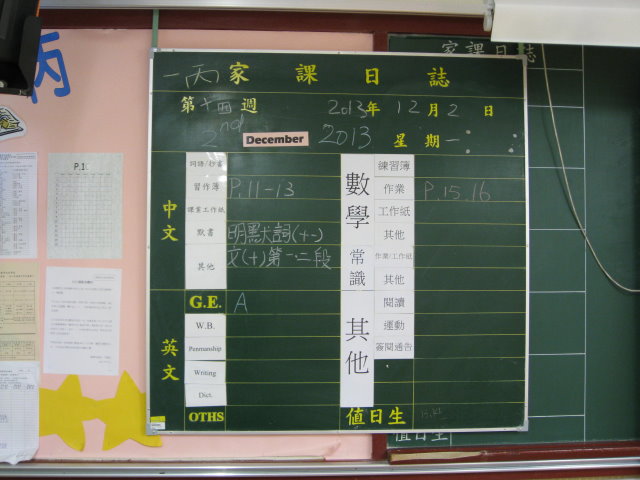 丙
P.1
家課日誌
一丙 家課日誌
第十四週 2013年12月2日
2nd December 2013 星期一
中文
詞語/抄書
習作簿 P.11-13
課堂工作紙
默書 明默詞(十一)
其他 文(十)第一、二段
英文
G.E. A
W.B.
Penmanship
Writing
Dict.
OTHS
數學
練習簿
作業 P.15.16
工作紙
其他
常識
作業/工作紙
其他
其他
閱讀
運動
簽閱通告
值日生
值日生